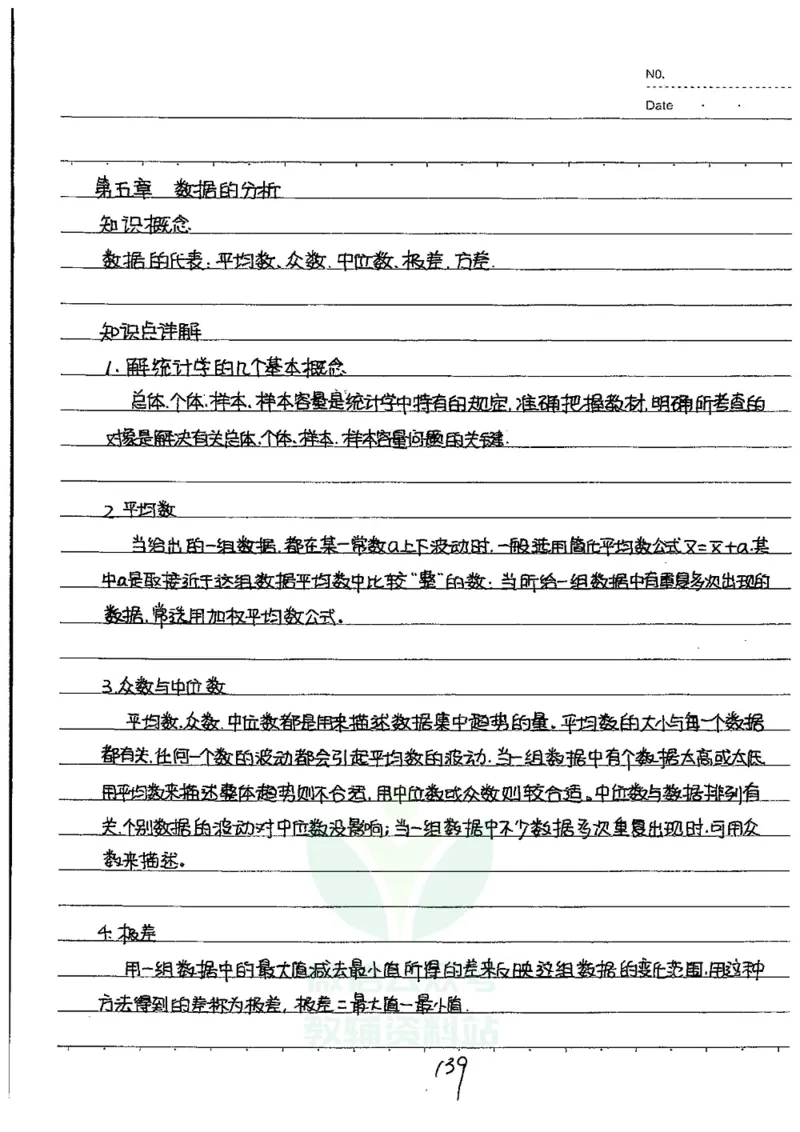 NO.
Date
第五章 数据的分析
知识概念
数据的代表:平均数、众数、中位数、极差、方差.
知识点详解
1.解统计学的几个基本概念
总体、个体、样本、样本容量是统计学中特有的规定,准确把握教材,明确所考查的
对象是解决有关总体、个体、样本、样本容量问题的关键.
2.平均数
当给出的一组数据,都在某一常数a上下波动时,一般选用简化平均数公式x̄=x̄+a,其
中a是取接近于这组数据平均数中比较“整”的数;当所给一组数据中有重复多次出现的
数据,常选用加权平均数公式。
3.众数与中位数
平均数、众数、中位数都是用来描述数据集中趋势的量。平均数的大小与每一个数据
都有关,任何一个数的波动都会引起平均数的波动,当一组数据中有个数据太高或太低,
用平均数来描述整体趋势则不合适,用中位数或众数则较合适。中位数与数据排列有
关,个别数据的波动对中位数没影响;当一组数据中不少数据多次重复出现时,可用众
数来描述。
4.极差
用一组数据中的最大值减去最小值所得的差来反映这组数据的变化范围,用这种
方法得到的差称为极差,极差=最大值-最小值.
微信公众号
教辅资料站
139